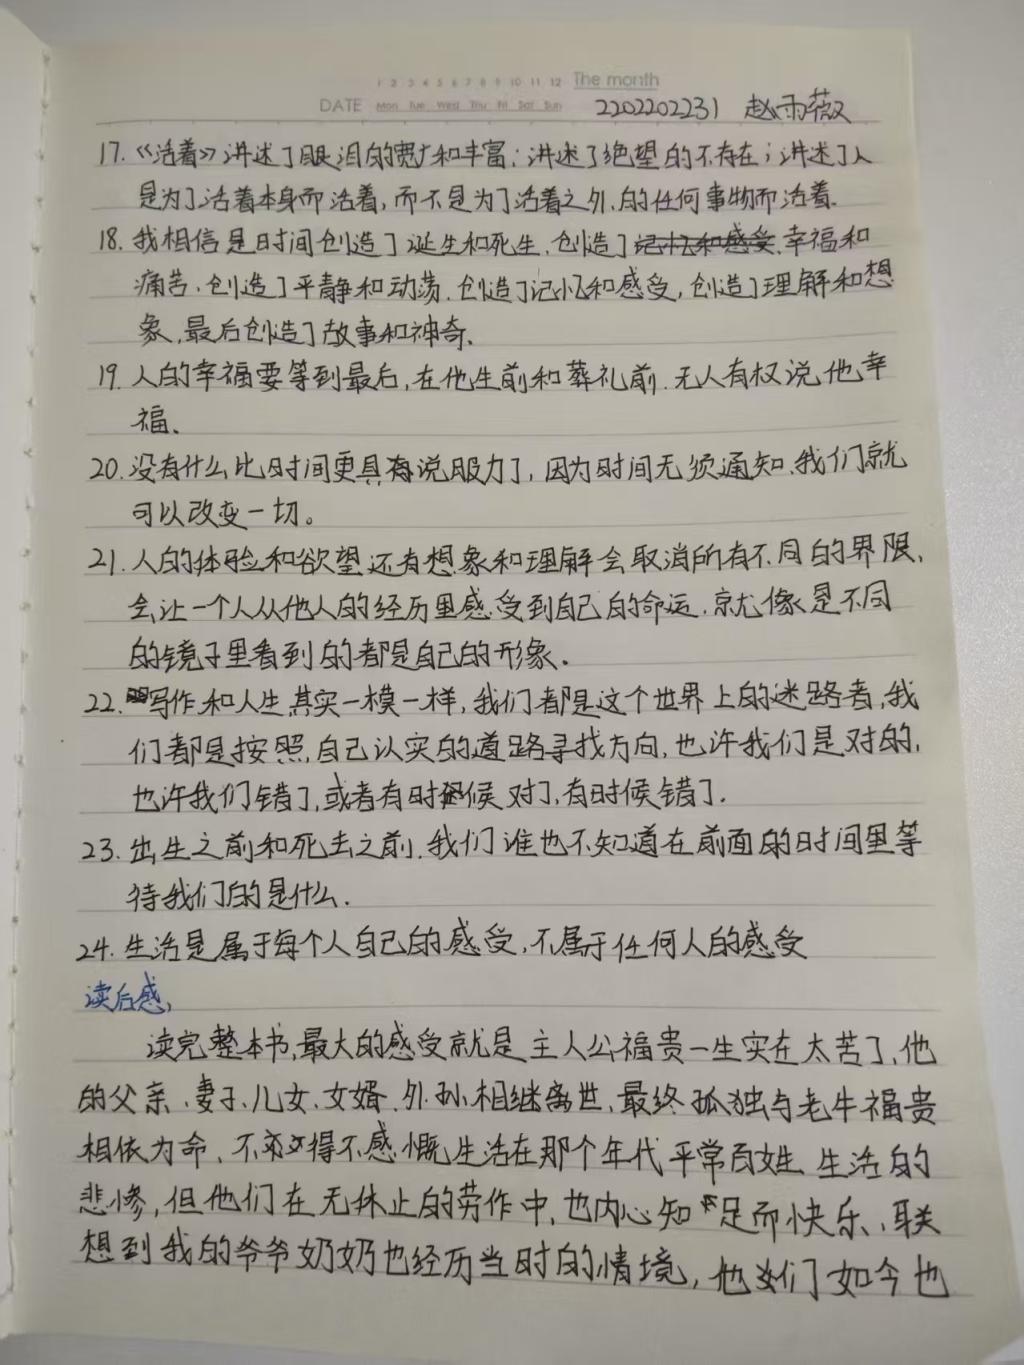 1 2 3 4 5 6 7 8 9 10 11 12 The month
DATE Mon Tue Wed Thu Fri Sat Sun 2202202231 赵雨薇
17.《活着》讲述了眼泪的宽广和丰富;讲述了绝望的不存在;讲述了人
是为了活着本身而活着,而不是为了活着之外的任何事物而活着.
18. 我相信是时间创造了诞生和死生、创造了记忆和感受、幸福和
痛苦、创造了平静和动荡、创造了记忆和感受,创造了理解和想
象,最后创造了故事和神奇.
19. 人的幸福要等到最后,在他生前和葬礼前、无人有权说他幸
福、
20. 没有什么比时间更具有说服力了,因为时间无须通知、我们就
可以改变一切。
21. 人的体验和欲望还有想象和理解会取消所有不同的界限、
会让一个人从他人的经历里感受到自己的命运、就像是不同
的镜子里看到的都是自己的形象.
22. 写作和人生其实一模一样,我们都是这个世界上的迷路者,我
们都是按照自己认实的道路寻找方向,也许我们是对的,
也许我们错了,或者有时候对了,有时候错了.
23. 出生之前和死去之前、我们谁也不知道在前面的时间里等
待我们的是什么.
24. 生活是属于每个人自己的感受,不属于任何人的感受
读后感,
读完整本书,最大的感受就是主人公福贵一生实在太苦了,他
的父亲、妻子、儿女、女婿、外孙相继离世、最终孤独与老牛福贵
相依为命、不得不感慨生活在那个年代平常百姓生活的
悲惨,但他们在无休止的劳作中,也内心知足而快乐、联
想到我的爷爷奶奶也经历当时的情境,他们如今也